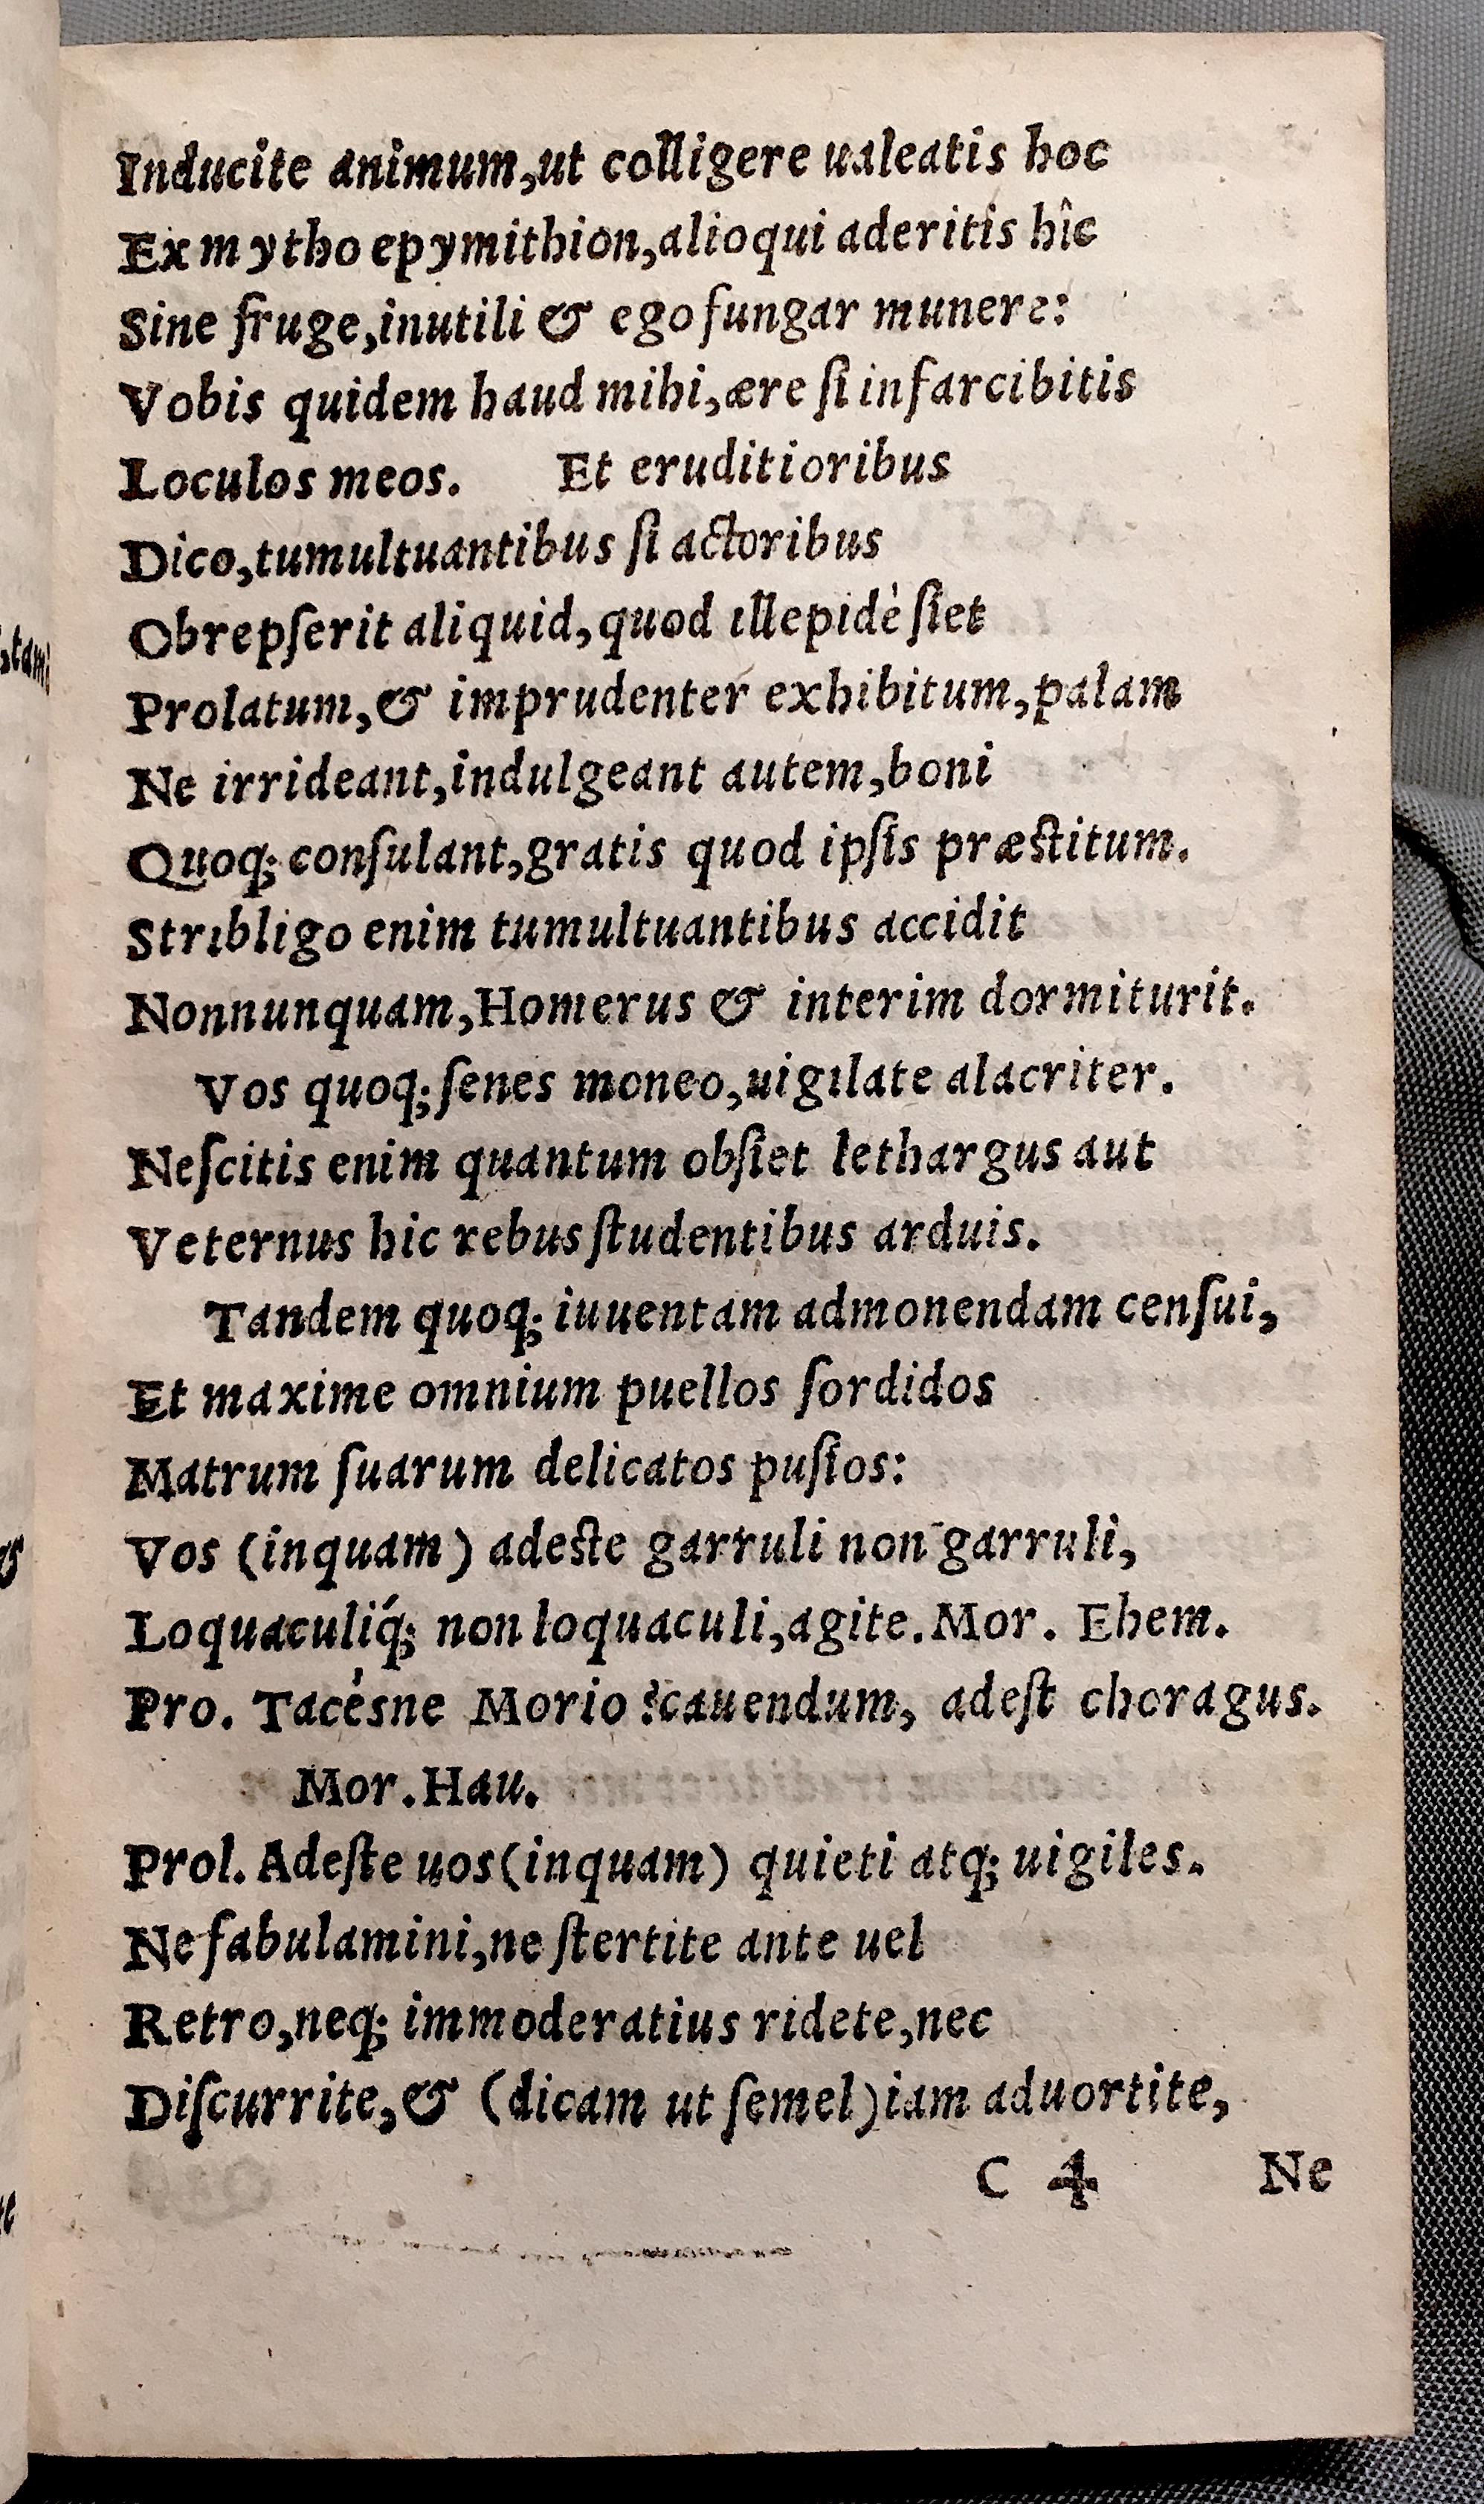 Inducite animum,ut colligere ualeatis hoc
Ex mytho epymithion,alioqui aderitis hîc
Sine fruge,inutili & ego fungar munere:
Vobis quidem haud mihi,ære ſi infarcibitis
Loculos meos. Et eruditioribus
Dico,tumultuantibus ſi actoribus
Obrepſerit aliquid,quod illepidè ſiet
Prolatum,& imprudenter exhibitum,palam
Ne irrideant,indulgeant autem,boni
Quoq; conſulant,gratis quod ipſis præſtitum.
Stribligo enim tumultuantibus accidit
Nonnunquam,Homerus & interim dormiturit.
Vos quoq; ſenes moneo,uigilate alacriter.
Neſcitis enim quantum obſiet lethargus aut
Veternus hic rebus ſtudentibus arduis.
Tandem quoq; iuuentam admonendam cenſui,
Et maxime omnium puellos ſordidos
Matrum ſuarum delicatos puſios:
Vos (inquam) adeſte garruli non garruli,
Loquaculiq́; non loquaculi,agite.Mor. Ehem.
Pro. Tacésne Morio?cauendum, adeſt choragus.
Mor.Hau.
Prol. Adeſte uos(inquam) quieti atq; uigiles.
Ne fabulamini,ne ſtertite ante uel
Retro,neq; immoderatius ridete,nec
Diſcurrite,& (dicam ut ſemel)iam aduortite,
C 4 Ne